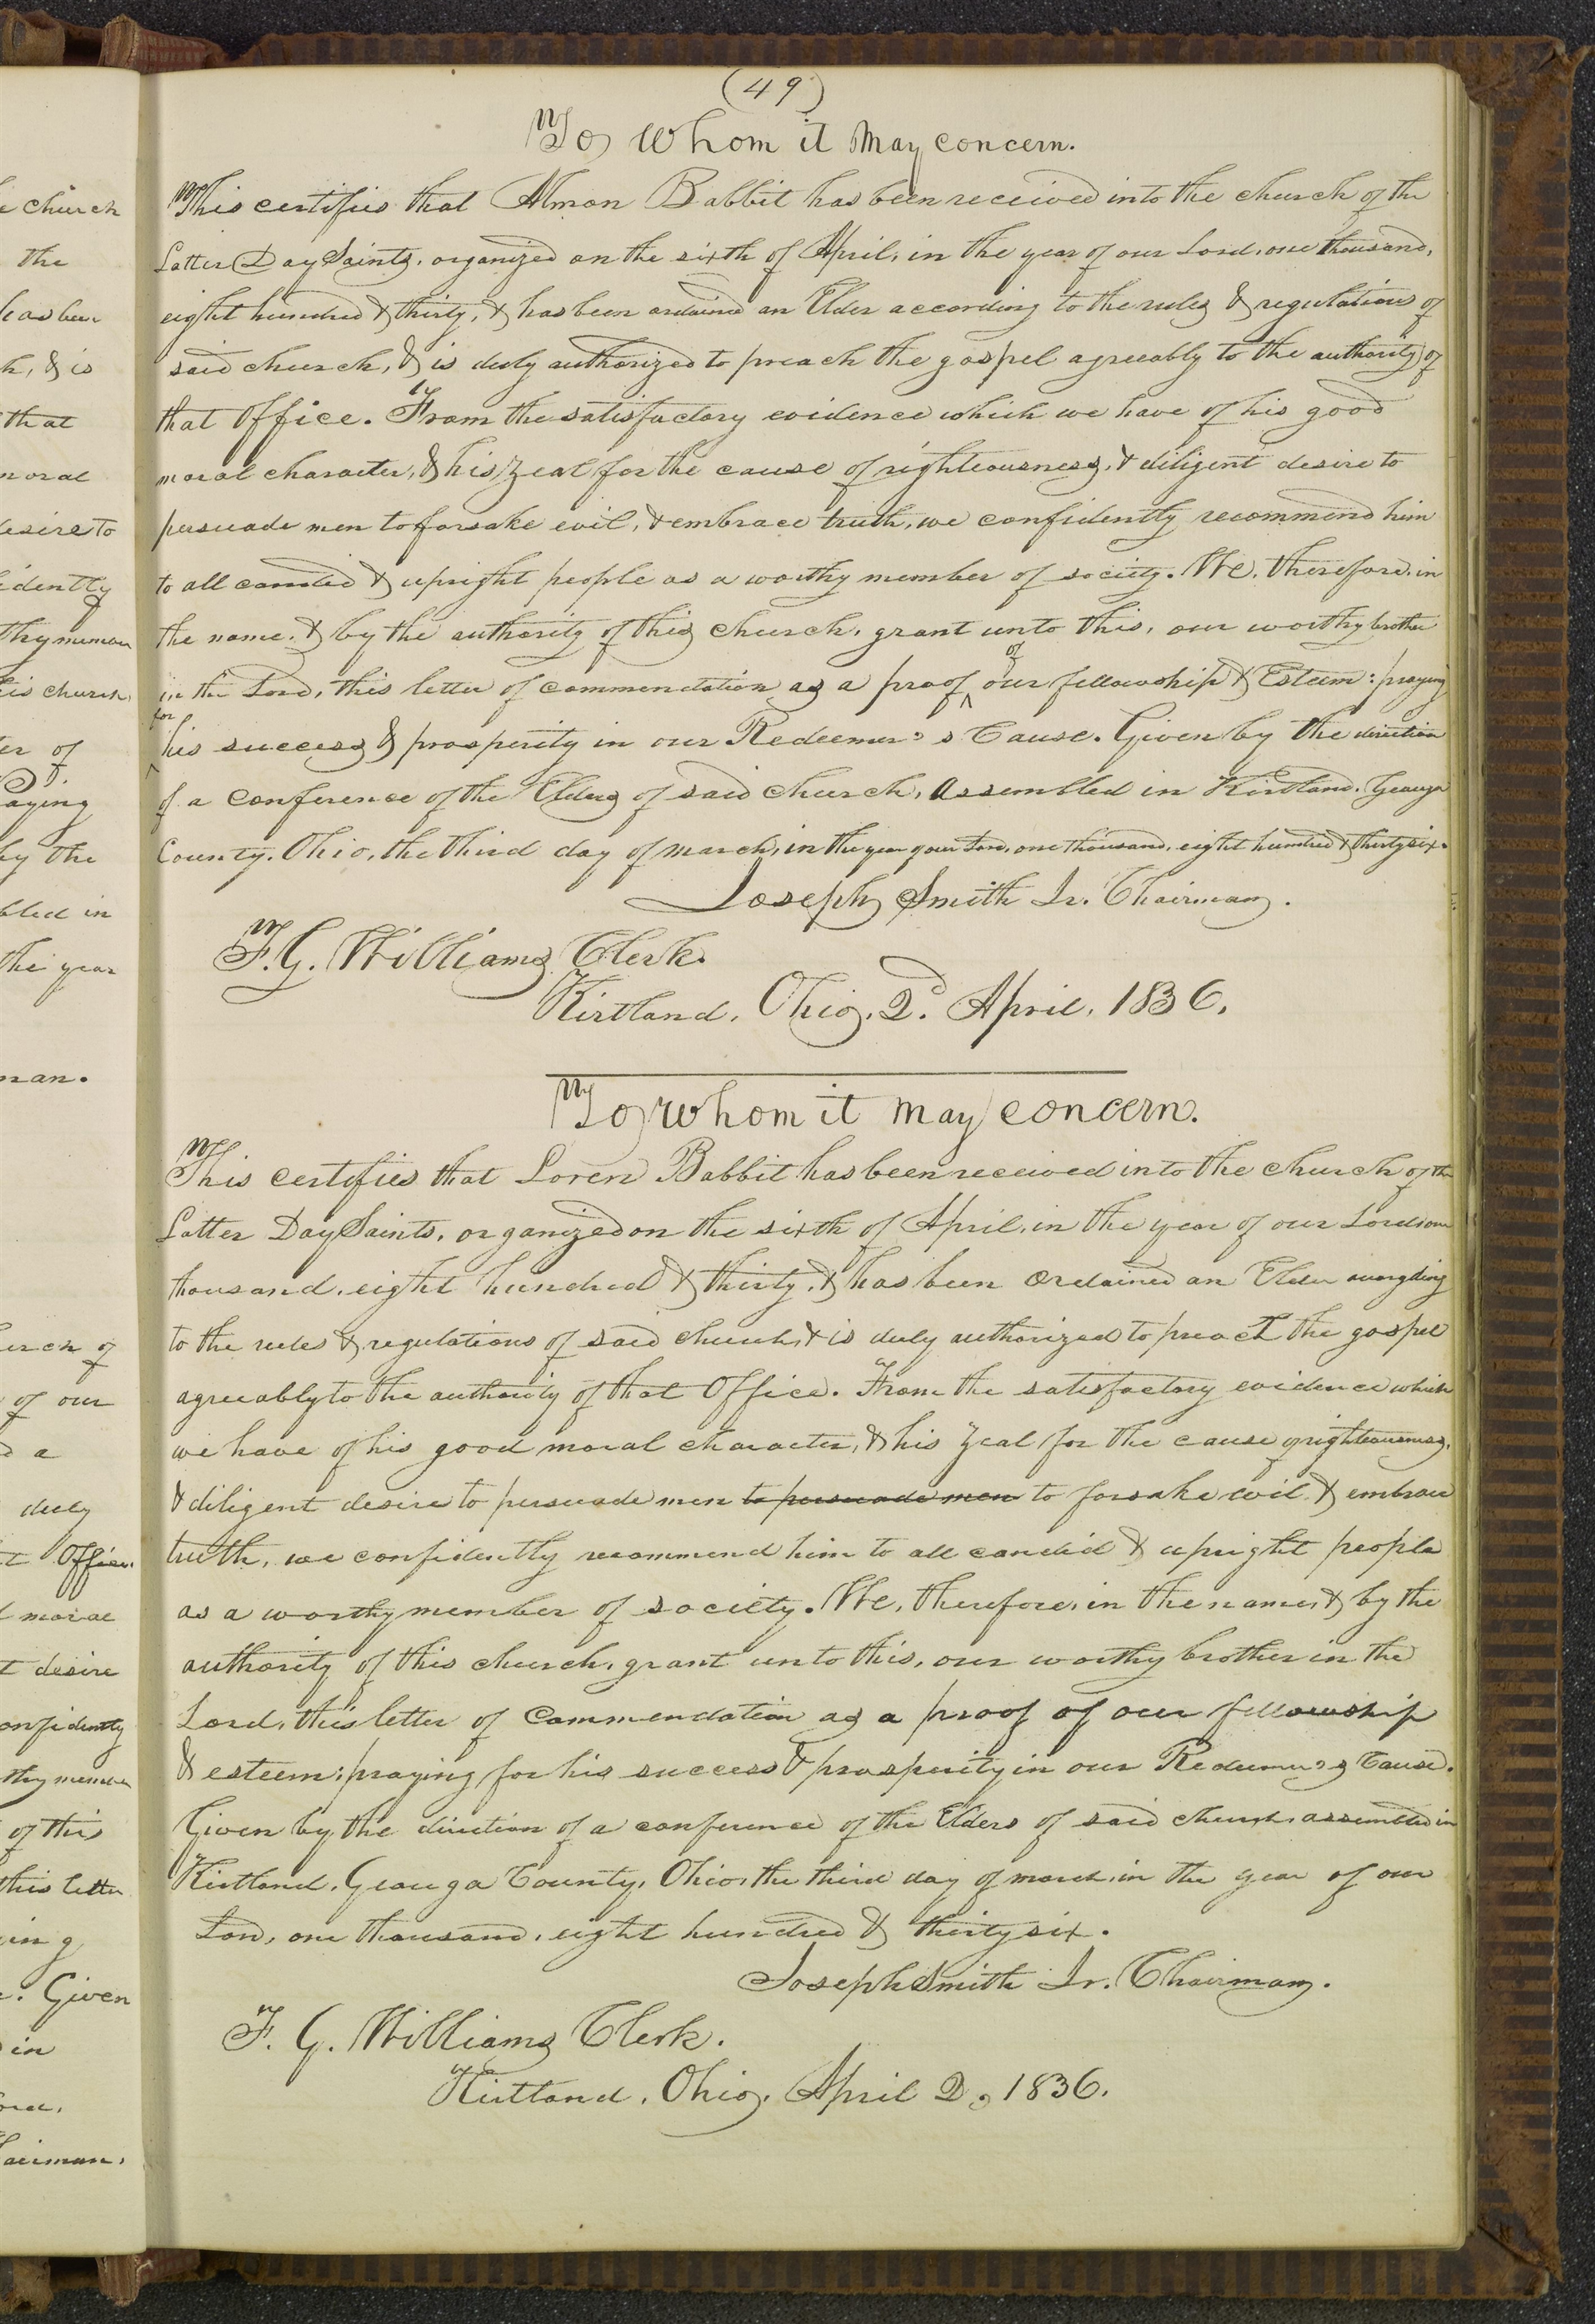 (49)
To whom it may concern.
This certifies that Almon Babbit has been received into the church of the
Latter Day Saints, organized on the sixth of April, in the year of our Lord, one thousand,
eight hundred & thirty, & has been ordained an Elder according to the rules & regulations of
said church, & is duly authorized to preach the gospel agreeably to the authority of
that office. From the satisfactory evidence which we have of his good
moral character, & his zeal for the cause of righteousness, & diligent desire to
persuade men to forsake evil, & embrace truth, we confidently recommend him
to all candid & upright people as a worthy member of society. We, therefore, in
the name, & by the authority of this church, grant unto this, our worthy brother
in the Lord, this letter of commendation as a proof of our fellowship & Esteem: praying
for his success & prosperity in our Redeemer's Cause. Given by the direction
of a conference of the Elders of said church, assembled in Kirtland, Geauga
County, Ohio, the third day of march, in the year of our Lord, one thousand, eight hundred & thirty six.
Joseph Smith Jr. Chairman.
F. G. Williams Clerk.
Kirtland, Ohio, 2d. April, 1836.
To whom it may concern.
This certifies that Loren Babbit has been received into the church of the
Latter Day Saints, organized on the sixth of April, in the year of our Lord one
thousand, eight hundred & thirty, & has been ordained an Elder according
to the rules & regulations of said church, & is duly authorized to preach the gospel
agreeably to the authority of that office. From the satisfactory evidence which
we have of his good moral character, & his zeal for the cause of righteousness,
& diligent desire to persuade men to persuade men to forsake evil & embrace
truth, we confidently recommend him to all candid & upright people
as a worthy member of society. We, therefore, in the name, & by the
authority of this church, grant unto this, our worthy brother in the
Lord, this letter of Commendation as a proof of our fellowship
& esteem: praying for his success & prosperity in our Redeemer's Cause.
Given by the direction of a conference of the Elders of said church, assembled in
Kirtland, Geauga County, Ohio, the third day of march, in the year of our
Lord, one thousand, eight hundred & thirty six.
Joseph Smith Jr. Chairman.
F. G. Williams Clerk.
Kirtland, Ohio, April 2, 1836.